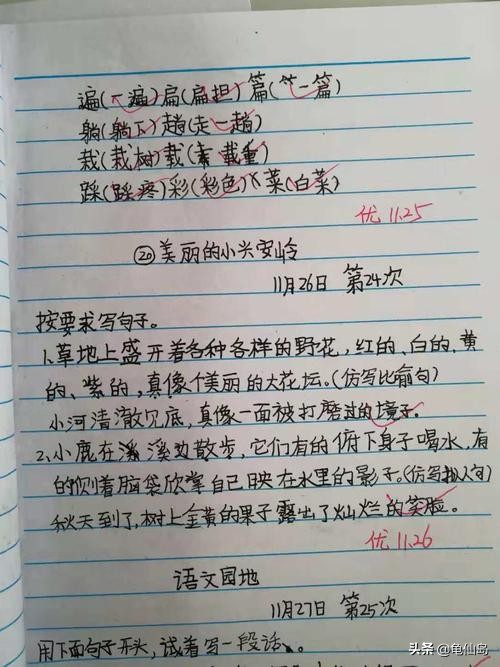 遍(一遍)扁(扁担)篇(一篇)
躺(躺下)趟(走一趟)
栽(栽树)载(载重)
踩(踩疼)彩(彩色)菜(白菜)
优 11.25
⑳美丽的小兴安岭
11月26日 第24次
按要求写句子。
1、草地上盛开着各种各样的野花,红的、白的、黄
的、紫的,真像个美丽的大花坛。(仿写比喻句)
小河清澈见底,真像一面被打磨过的镜子。
2、小鹿在溪边散步,它们有的俯下身子喝水,有
的侧着脑袋欣赏自己映在水里的影子。(仿写拟人句)
秋天到了,树上金黄的果子露出了灿烂的笑脸。
优 11.26
语文园地
11月27日 第25次
用下面句子开头,试着写一段话。
头条 @龟仙岛